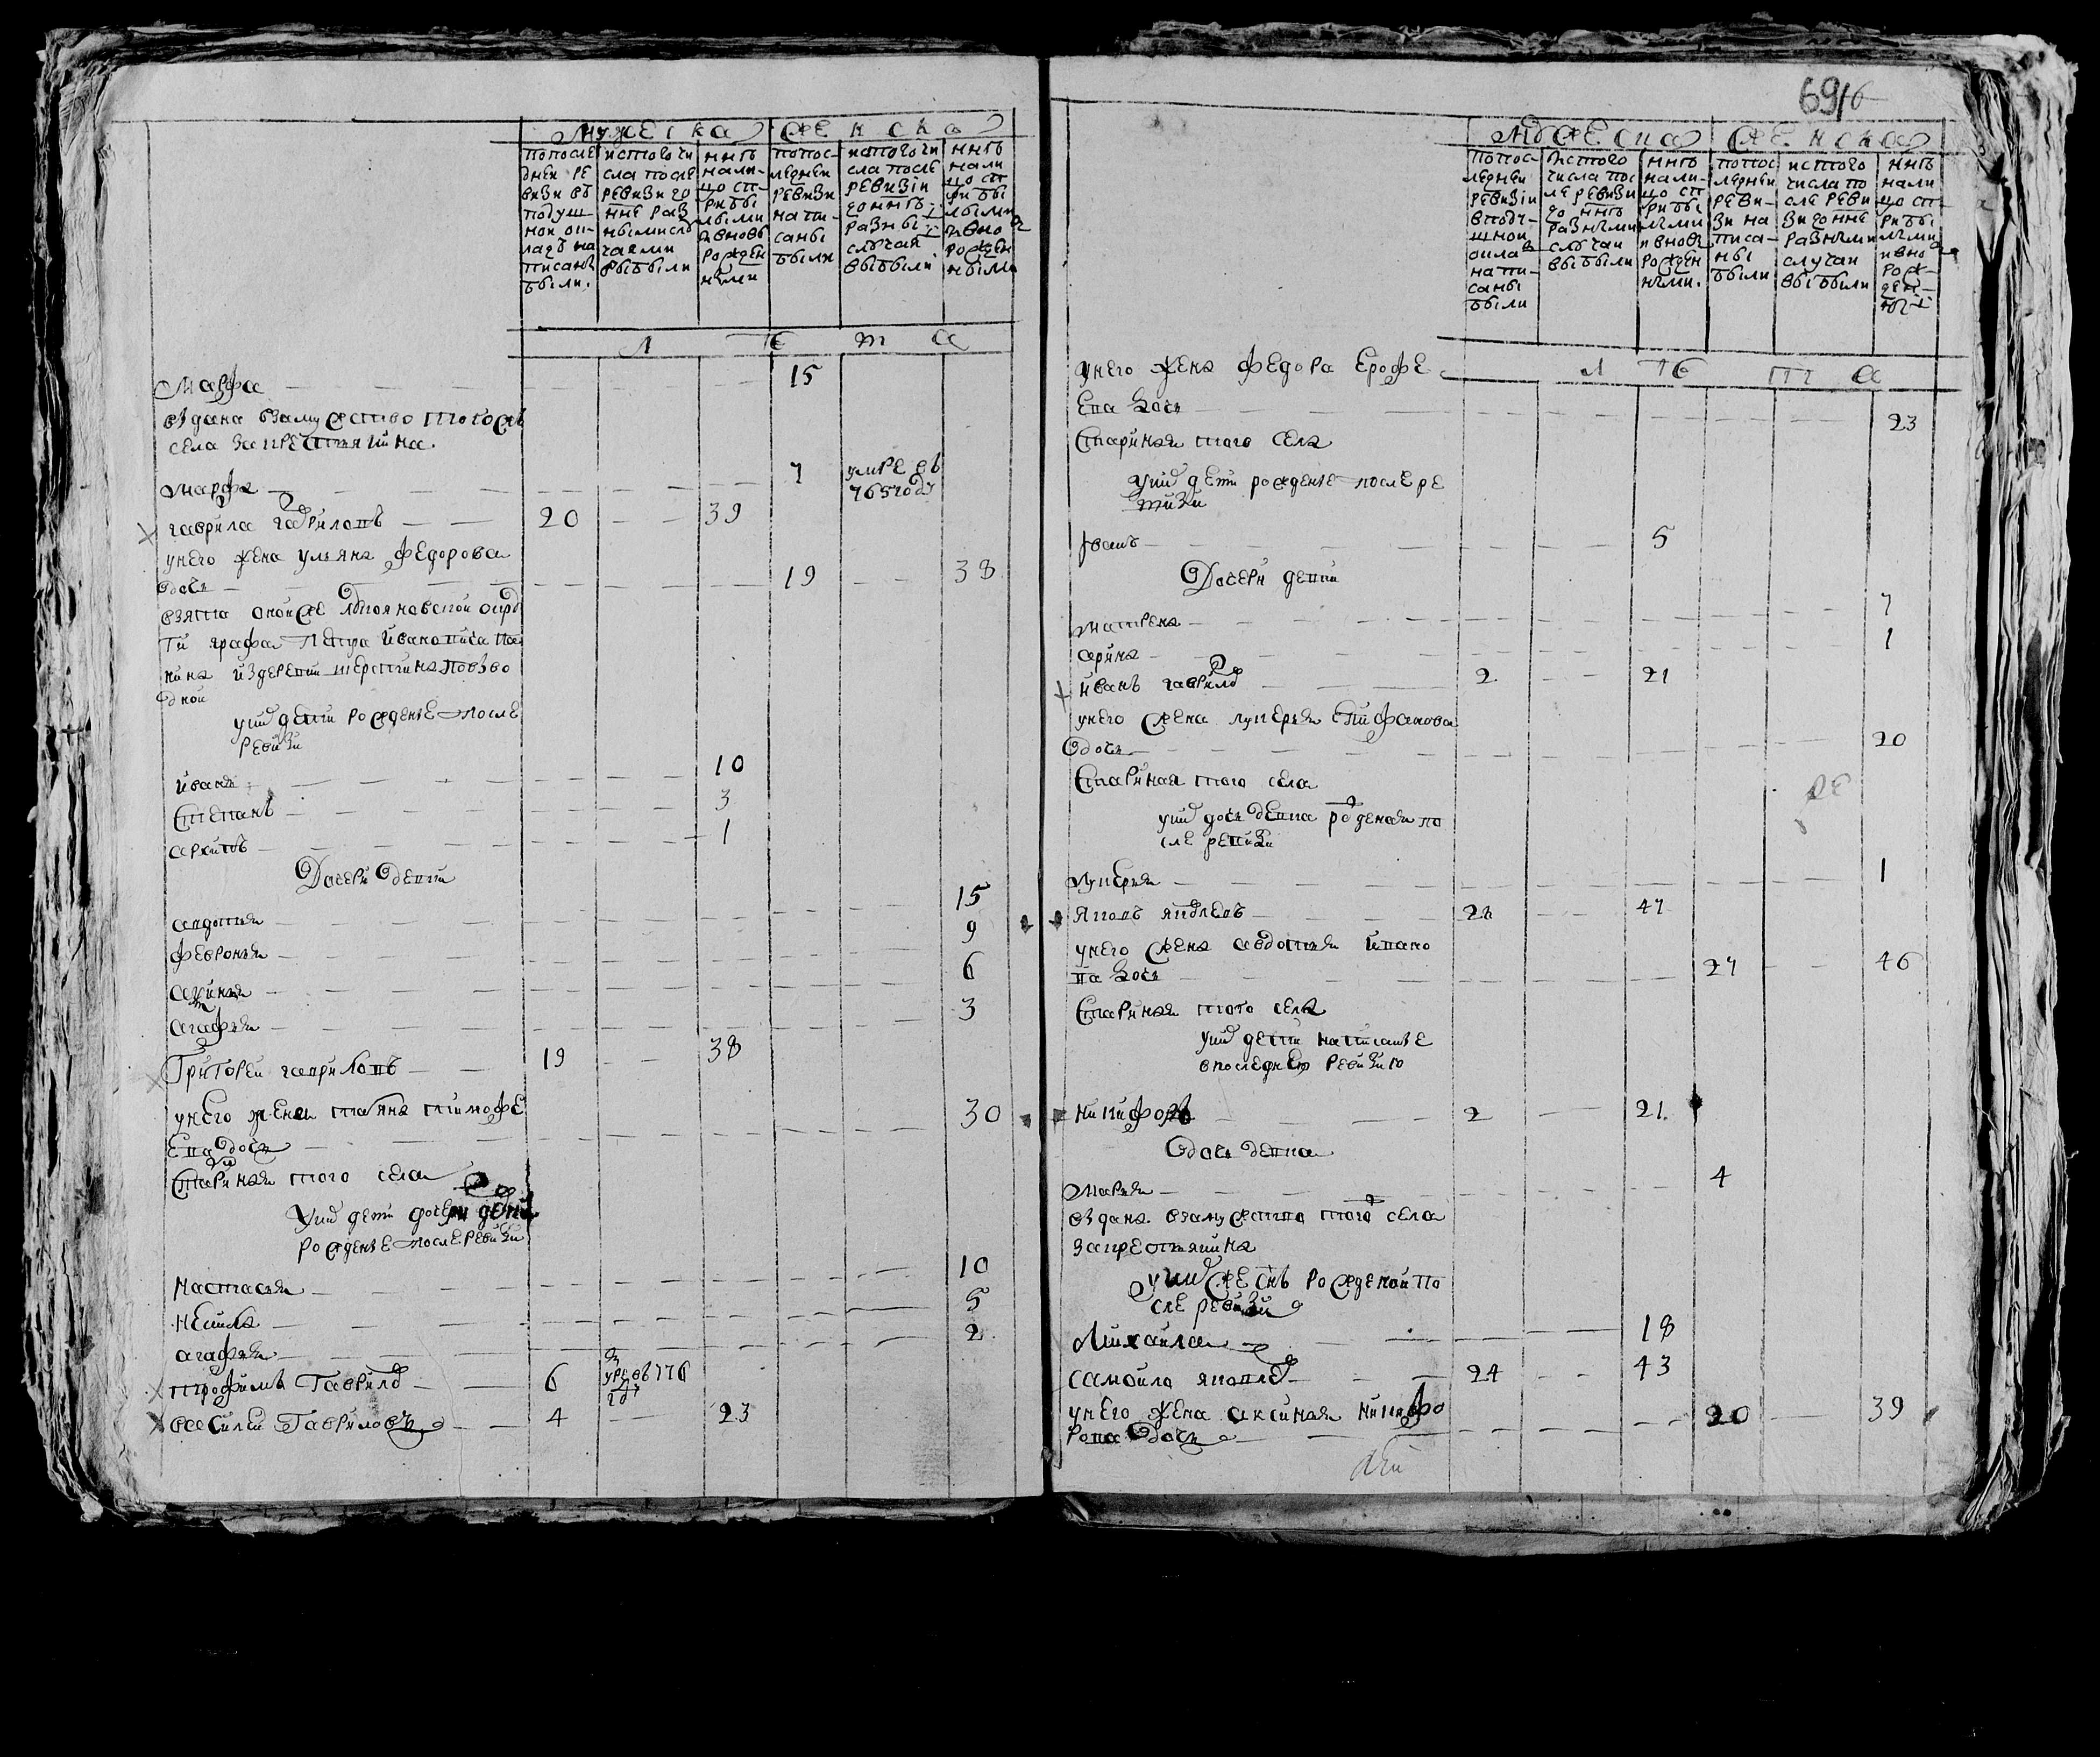 мужеска женска
по после
дней ре
визи въ
подуш
ной оп-
ладъ на
писаны
были.
ис того чи
сла после
ревизи до
нне раз
ными слу
чаями
выбыли
ннъ
нали-
цо ст-
рибы
лыми
и вновь
рожден
ными
по пос-
ледней
ревизи
напи-
саны
были
ис того чи
сла после
ревизіи
до ннъ
разны
случая
выбыли
ннъ
нали
цо ст
рибы
лыми
и вно
рожден
ными
л ѣ т а
марфа 15
въдана взамужство того ж
села за крестьянина.
марфа 7 умре въ
765 году
гаврила гаврилавъ 20 39
у него жена ульяна федорова
дочь 19 38
взята оной же
графа петра ивановича па
нина из деревни по
дной
у них дети рожденые после
ревизи
иванъ 10
степанъ 3
архипъ 1
дочери дети
авдотья 15
февронья 9
аксинья 6
агафья 3
григорей гавриловъ 19 38
у него жена татьяна тимофе
ева дочь 30
стариная того села
у них дети дочери дети
рожденые после ревизи
настасья 10
ненила 5
агафья 2
трофимъ гаврилов 6 умре въ 776
году
василей гавриловъ 4 23
6916
мужеска женска
по пос-
ледней
ревизіи
в поду-
шной
оплад
напи-
саны
были
ис того
числа пос
ле ревизи
до ннъ
разными
случаи
выбыли
ннъ
нали-
цо ст
рибы
лыми
и вновь
рожден
ными.
по пос
ледней
реви-
зи на
писа-
ны
были
ис того
числа по
сле реви
зи до нне
разными
случаи
выбыли
ннъ
нали
цо ст-
рибы
лыми
и вно
рож-
ден-
ы
л ѣ т а
у него жена федора ерофе
ева дочь 23
стариная того села
у них дети рожденые после ре
визи
иванъ 5
дочери дети
матрена 7
арина 1
иванъ гаврилов 2 21
у него жена лукерья епифанова
дочь 20
стариная того села
у них дочь девка рожденая по
сле ревизи
лукерья 1
яковъ яковлевъ 28 47
у него жена авдотья ивано
ва дочь 27 46
стариная того села
у них дети написаные
в последнею ревизию
никифоръ 2 21.
дочь девка
марья 4
въдана взамужство того ж села
за крестьянина
у них же снъ рожденой по
сле ревизи
михаила 18
самойла яковлев 24 43
у него жена аксинья никифо
рова дочь 20 39